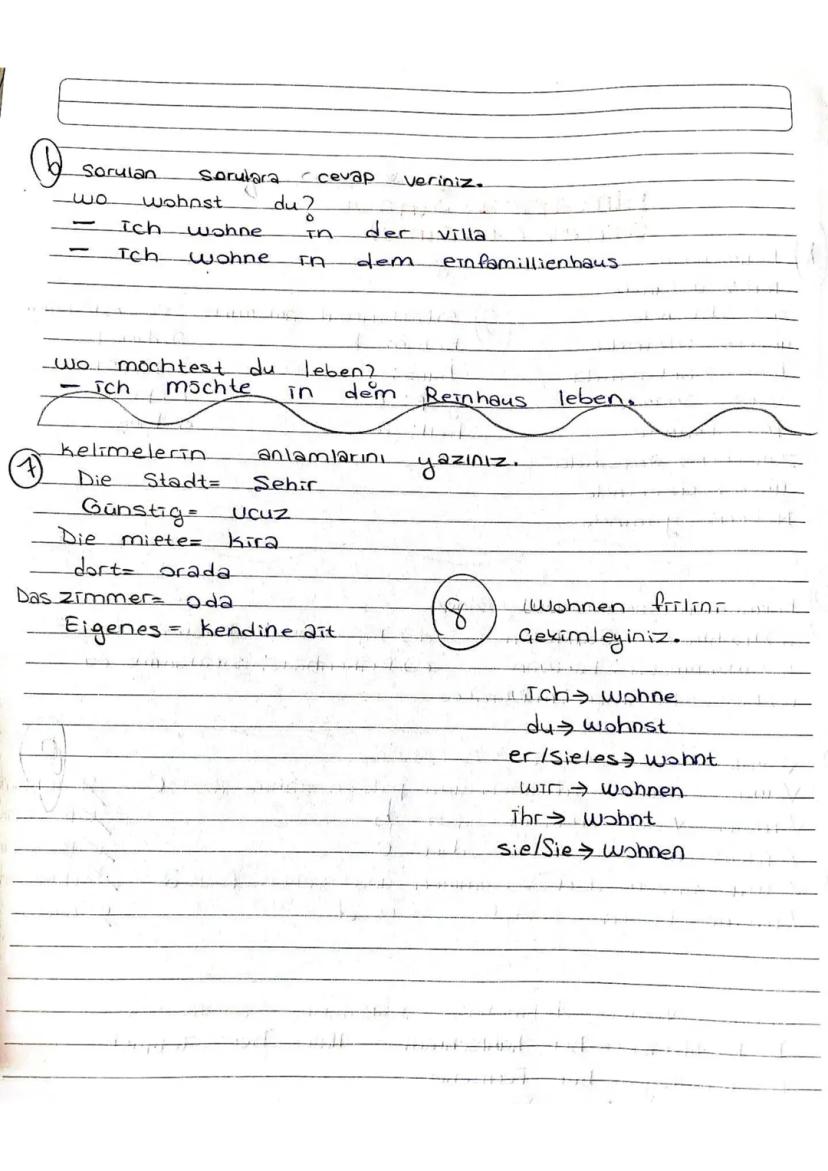 6 Sorulan sorulara cevap veriniz.
wo wohnst du?
- Ich wohne in der villa
- Ich wohne in dem einfamillienhaus
wo mochtest du leben?
- ich möchte in dem Reinhaus leben.
7 kelimelerin anlamlarını yazınız.
Die Stadt= Sehir
Günstig= ucuz
Die miete= kira
dort= orada
Das zimmer= oda
Eigenes= kendine ait
8 Wohnen fiilini
Çekimleyiniz.
Ich→ wohne
du→ wohnst
er/sie/es→ wohnt
wir→ wohnen
ihr→ wohnt
sie/Sie→ wohnen